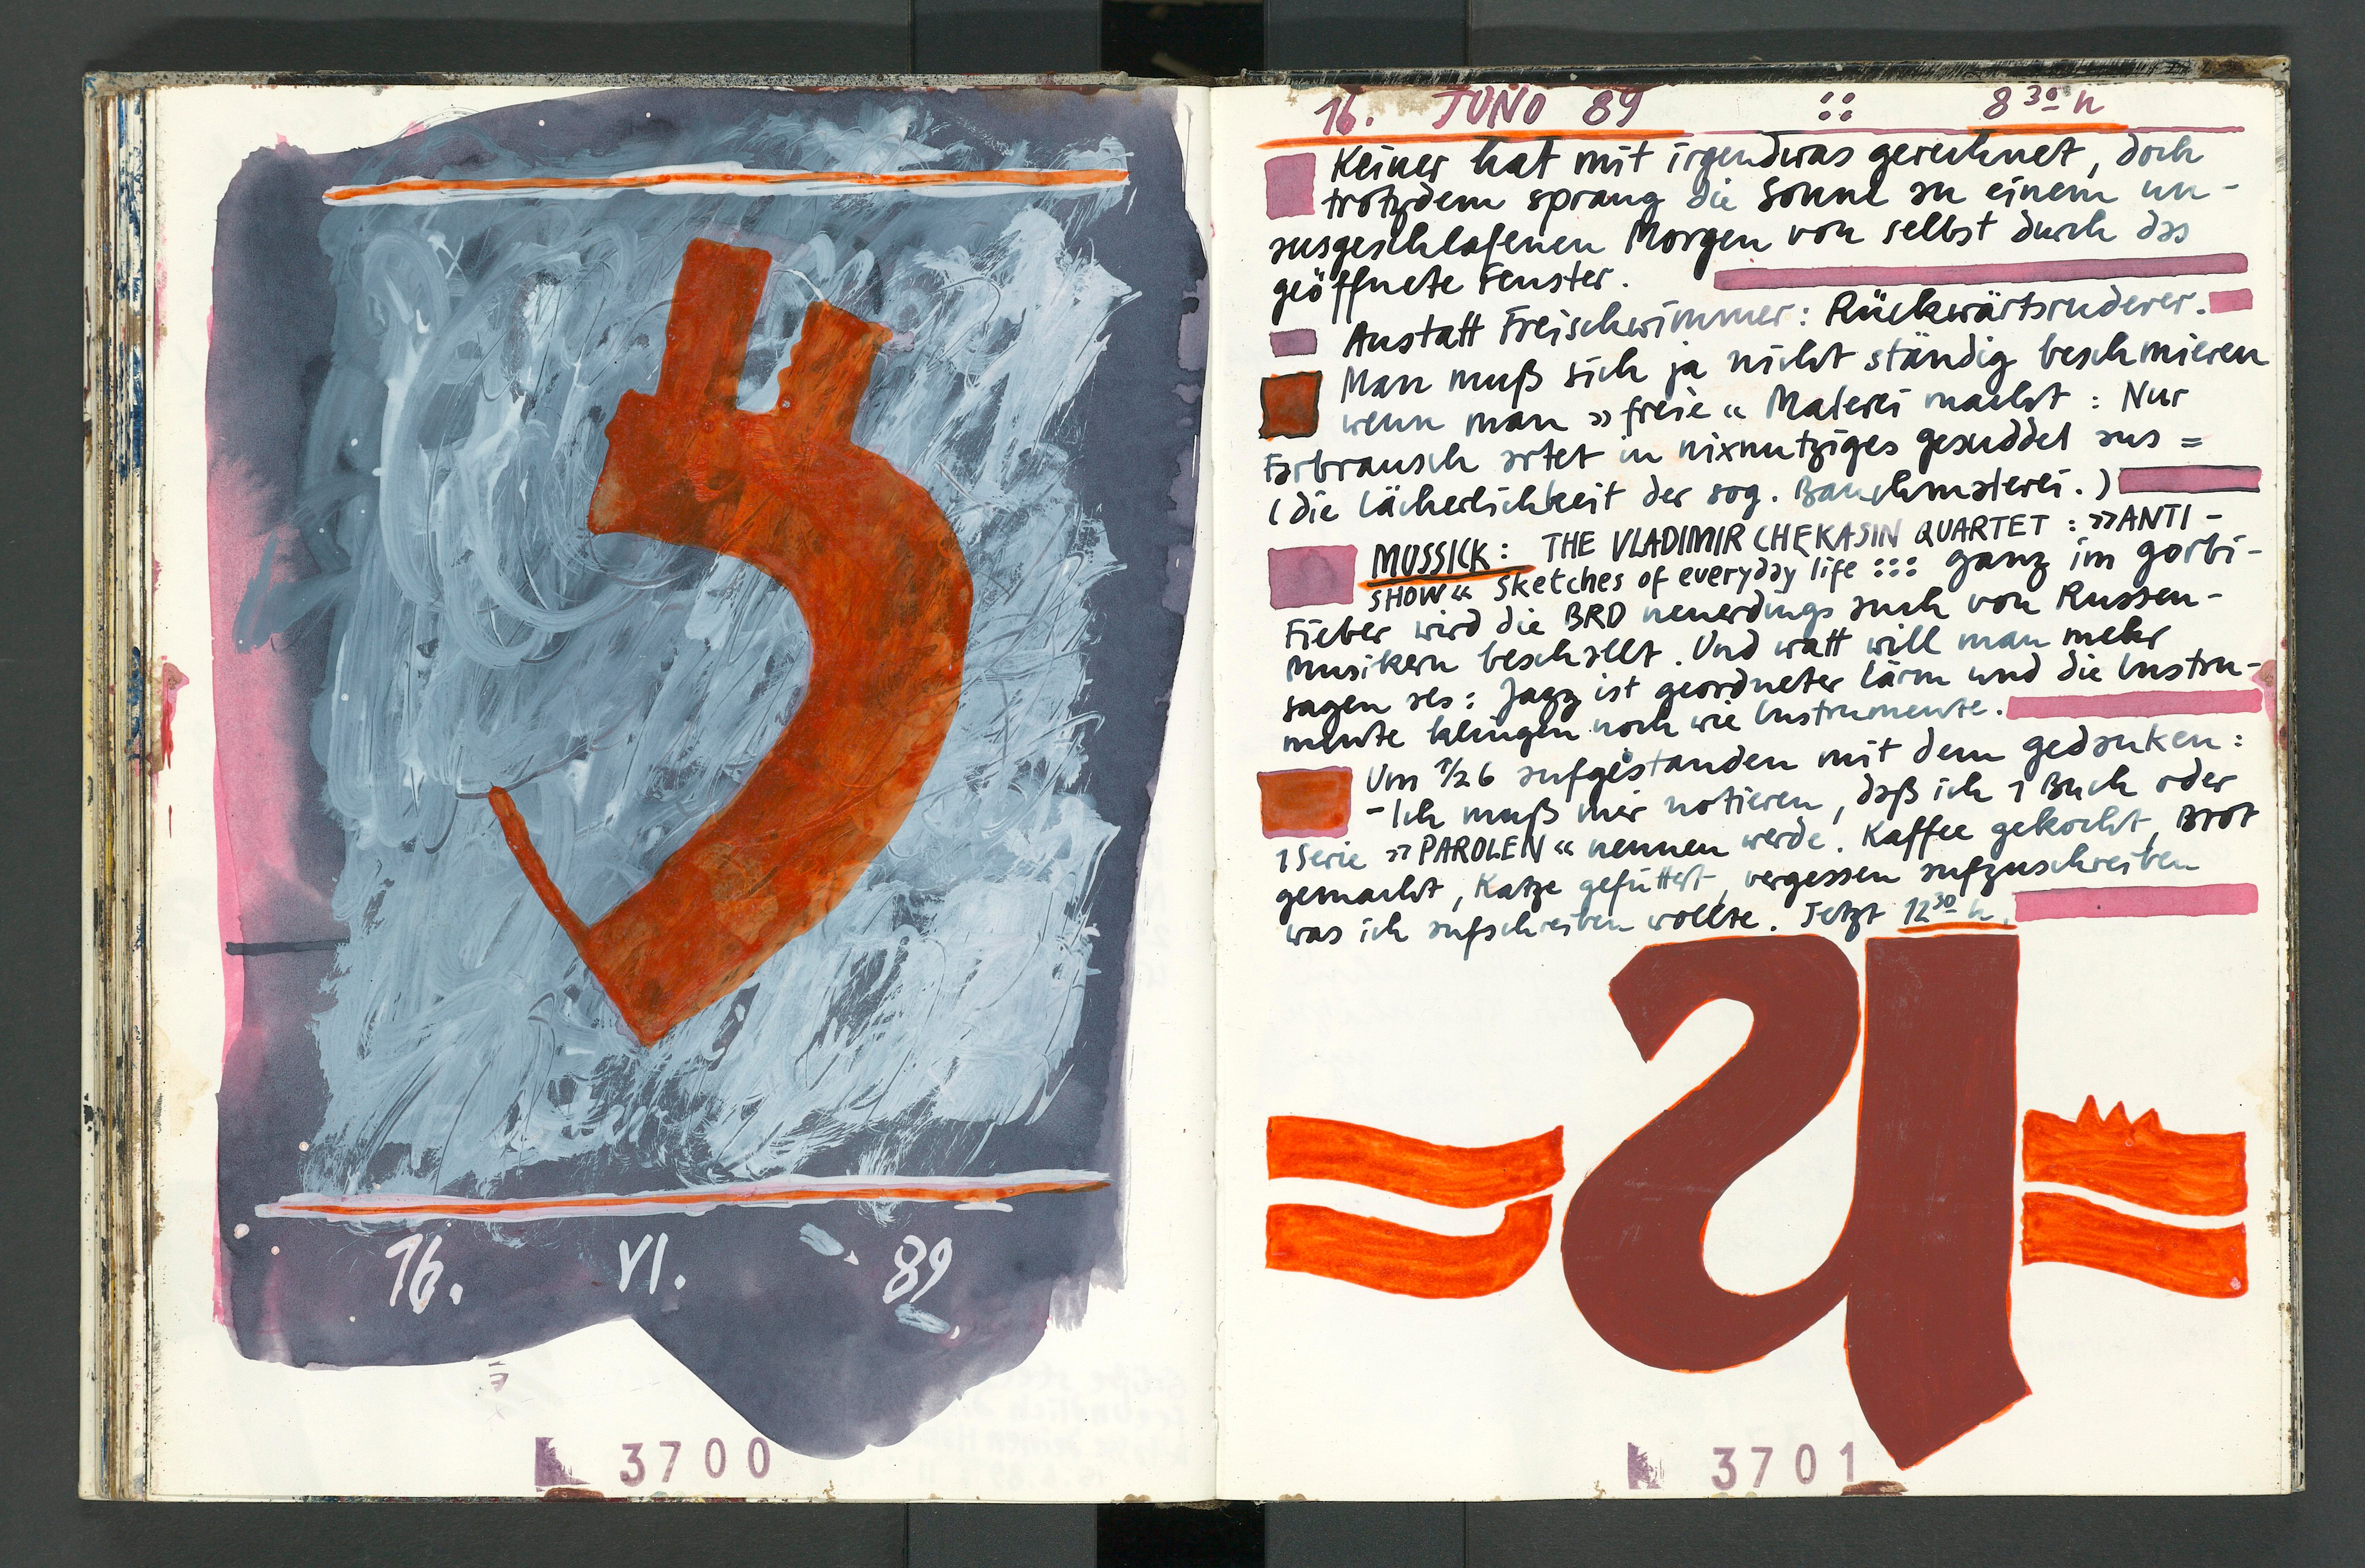 16. VI. 89
3700
16. JUNO 89 :: 8 30 h
Keiner hat mit irgendwas gerechnet, doch
trotzdem sprang die Sonne an einem un-
ausgeschlafenen Morgen von selbst durch das
geöffnete Fenster.
Anstatt Freischwimmer: Rückwärtsruderer.
Man muß sich ja nicht ständig beschmieren
wenn man »freie« Malerei macht: Nur
Farbrausch artet in nixnutziges gesuddel aus =
(die Lächerlichkeit der sog. Bauchmalerei.)
MUSSICK: THE VLADIMIR CHEKASIN QUARTET: »ANTI-
SHOW« sketches of everyday life ::: ganz im gorbi-
Fieber wird die BRD neuerdings auch von Russen-
Musikern beschallt. Und watt will man mehr
sagen als: Jazz ist geordneter Lärm und die Instru-
mente klingen noch wie Instrumente.
Um 1/2 6 aufgestanden mit dem gedanken:
- Ich muß mir notieren, daß ich 1 Buch oder
1 Serie »PAROLEN« nennen werde. Kaffee gekocht, Brot
gemacht, Katze gefüttert, vergessen aufzuschreiben
was ich aufschreiben wollte. Jetzt 12 30 h.
3701